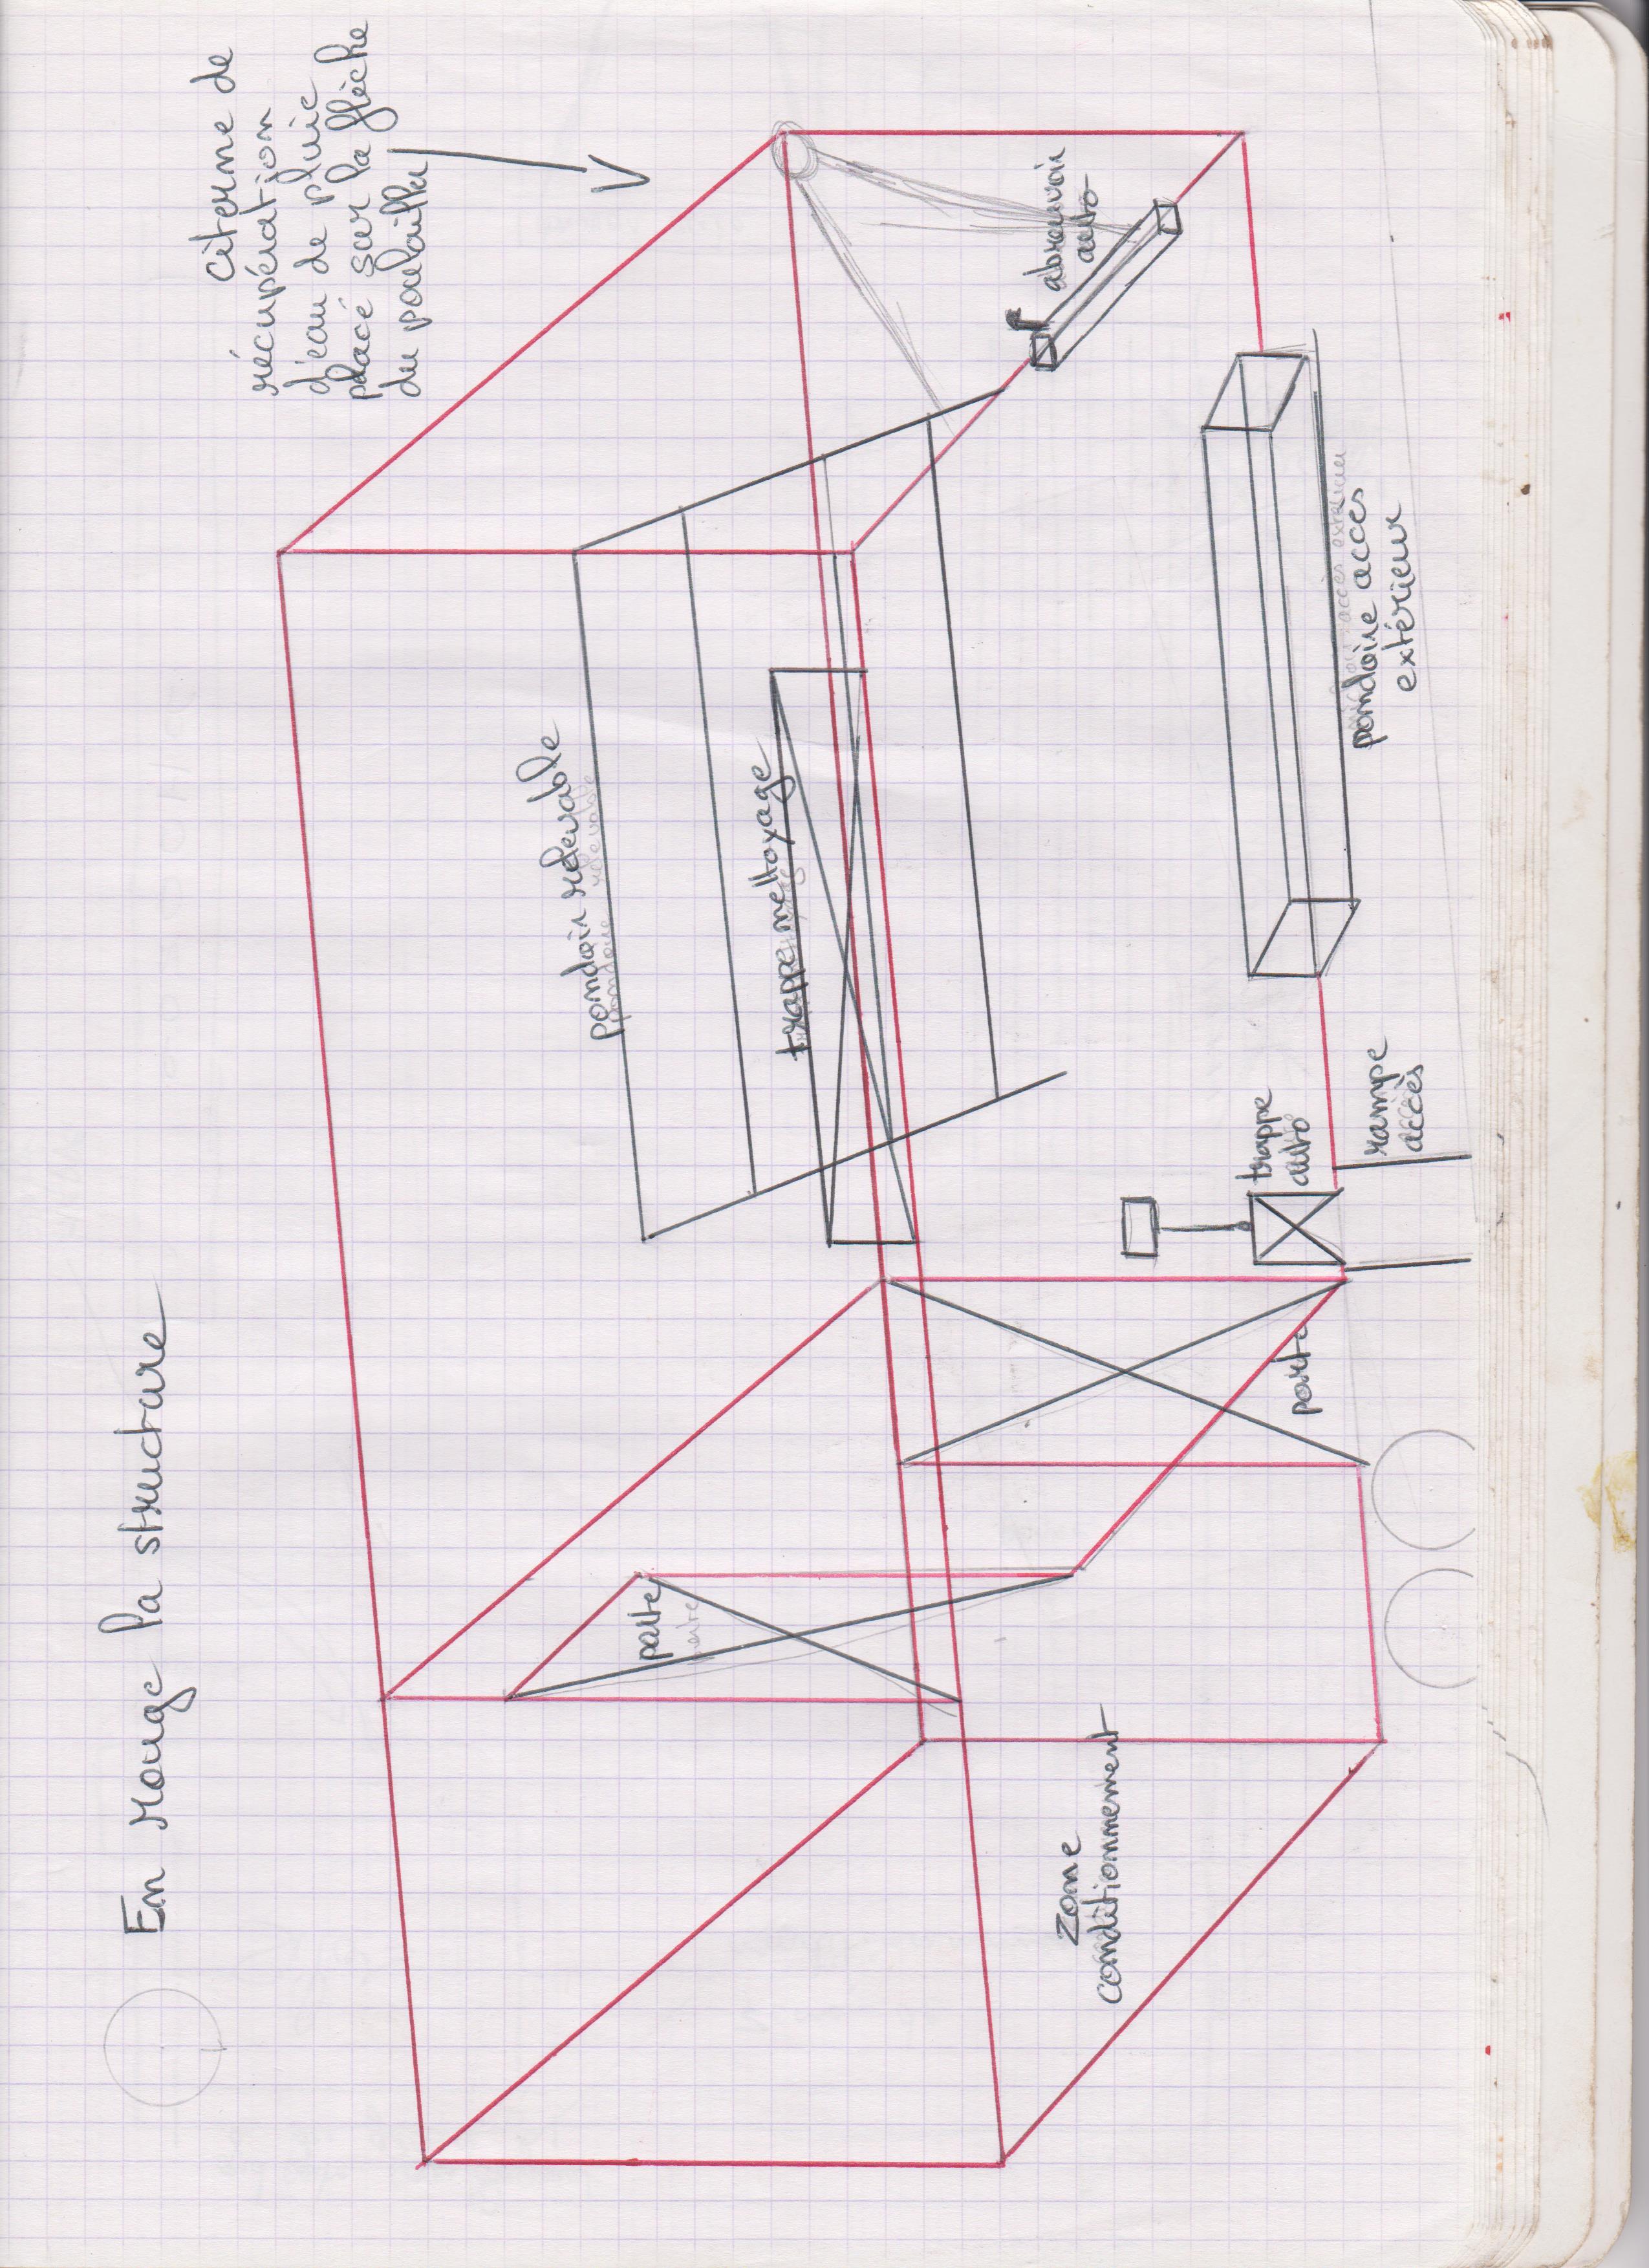 En rouge la structure
citerne de
récupération
d'eau de pluie
placé sur la flèche
du poulailler
pondoir relevable
pondoire relevable
trappe nettoyage
abreuvoir
auto
porte
porte
porte
trappe
auto
rampe
accès
accès exterieur
pondoire accès
extérieur
zone
conditionnement